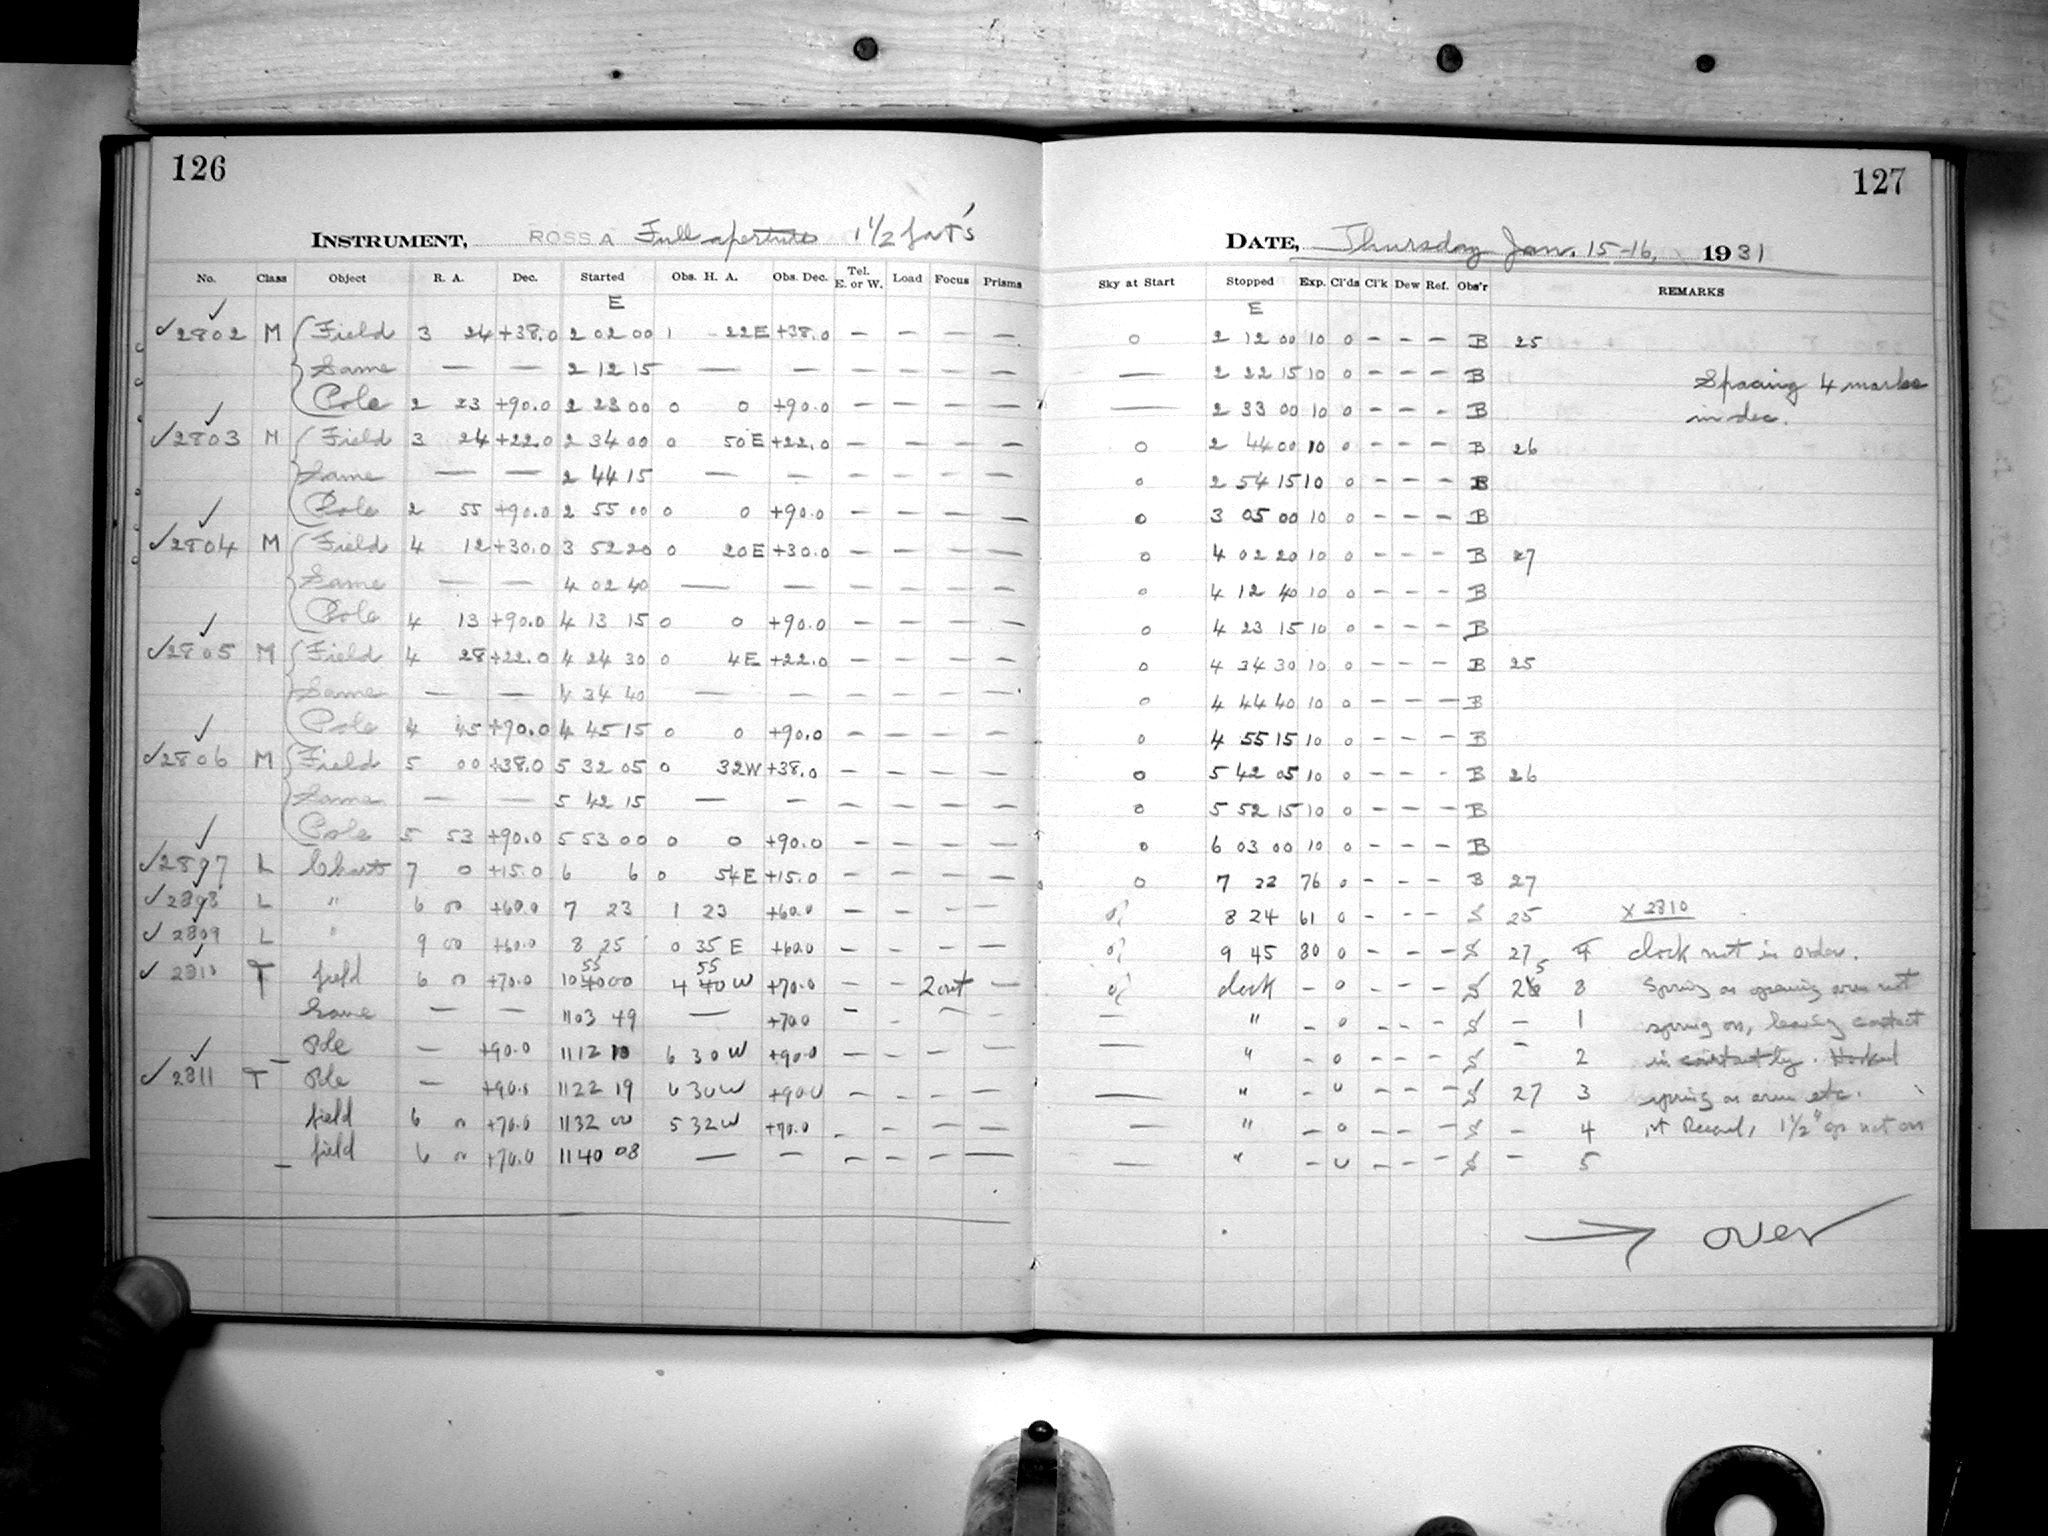 126
INSTRUMENT, ROSS A Full aperture 1 1/2
No. Class Object R. A. Dec. Started Obs. H. A. Obs. Dec. Tel. E. or W. Load Focus Prisms
E
2802 M Field 3 24 +38.0 2 02 00 1 22E +38.0 — — — —
Same — — 2 12 15 — — — — — —
Pole 2 23 +90.0 2 23 00 0 0 +90.0 — — — —
2803 M Field 3 24 +22.0 2 34 00 0 50E +22.0 — — — —
Same — — 2 44 15 — — — — — —
Pole 2 55 +90.0 2 55 00 0 0 +90.0 — — — —
2804 M Field 4 12 +30.0 3 52 20 0 20E +30.0 — — — —
Same — — 4 02 40 — — — — — —
Pole 4 13 +90.0 4 13 15 0 0 +90.0 — — — —
2805 M Field 4 28 +22.0 4 24 30 0 4E +22.0 — — — —
Same — — 4 34 40 — — — — — —
Pole 4 45 +90.0 4 45 15 0 0 +90.0 — — — —
2806 M Field 5 00 +38.0 5 32 05 0 32W +38.0 — — — —
Same — — 5 42 15 — — — — — —
Pole 5 53 +90.0 5 53 00 0 0 +90.0 — — — —
L Chart 7 0 +15.0 6 6 0 54E +15.0 — — — —
L " 6 00 +60.0 7 23 1 23 +60.0 — — — —
2809 L " 9 00 +60.0 8 25 0 35 E +60.0 — — — —
55 55
2810 T field 6 00 +70.0 10 40 00 4 40 W +70.0 — — 2 out —
Same — — 11 03 49 — +70.0 — — — —
Pole — +90.0 11 12 10 6 30 W +90.0 — — — —
2811 T Pole — +90.0 11 22 19 6 30 W +90.0 — — — —
field 6 00 +70.0 11 32 00 5 32 W +70.0 — — — —
field 6 00 +70.0 11 40 08 — — — — — —
127
DATE, Thursday Jan. 15-16, 1931
Sky at Start Stopped Exp. Cl'ds Cl'k Dew Ref. Obs'r REMARKS
E
0 2 12 00 10 0 — — — B 25
— 2 22 15 10 0 — — — B Spacing 4 marks
— 2 33 00 10 0 — — — B in dec.
0 2 44 00 10 0 — — — B 26
0 2 54 15 10 0 — — — B
0 3 05 00 10 0 — — — B
0 4 02 20 10 0 — — — B 27
0 4 12 40 10 0 — — — B
0 4 23 15 10 0 — — — B
0 4 34 30 10 0 — — — B 25
0 4 44 40 10 0 — — — B
0 4 55 15 10 0 — — — B
0 5 42 05 10 0 — — — B 26
0 5 52 15 10 0 — — — B
0 6 03 00 10 0 — — — B
0 7 22 76 0 — — — B 27
8 24 61 0 — — — S 25 X 2810
9 45 80 0 — — — S 27 clock not in order.
clock — 0 — — — S 8 Spring on opening arm not
— " — 0 — — — S — 1 spring on, leaving contact
— " — 0 — — — S — 2 in constantly. Hooked
— " — 0 — — — S 27 3 spring on arm etc.
— " — 0 — — — S — 4 1 1/2" ap not on
— " — 0 — — — S — 5
→ over